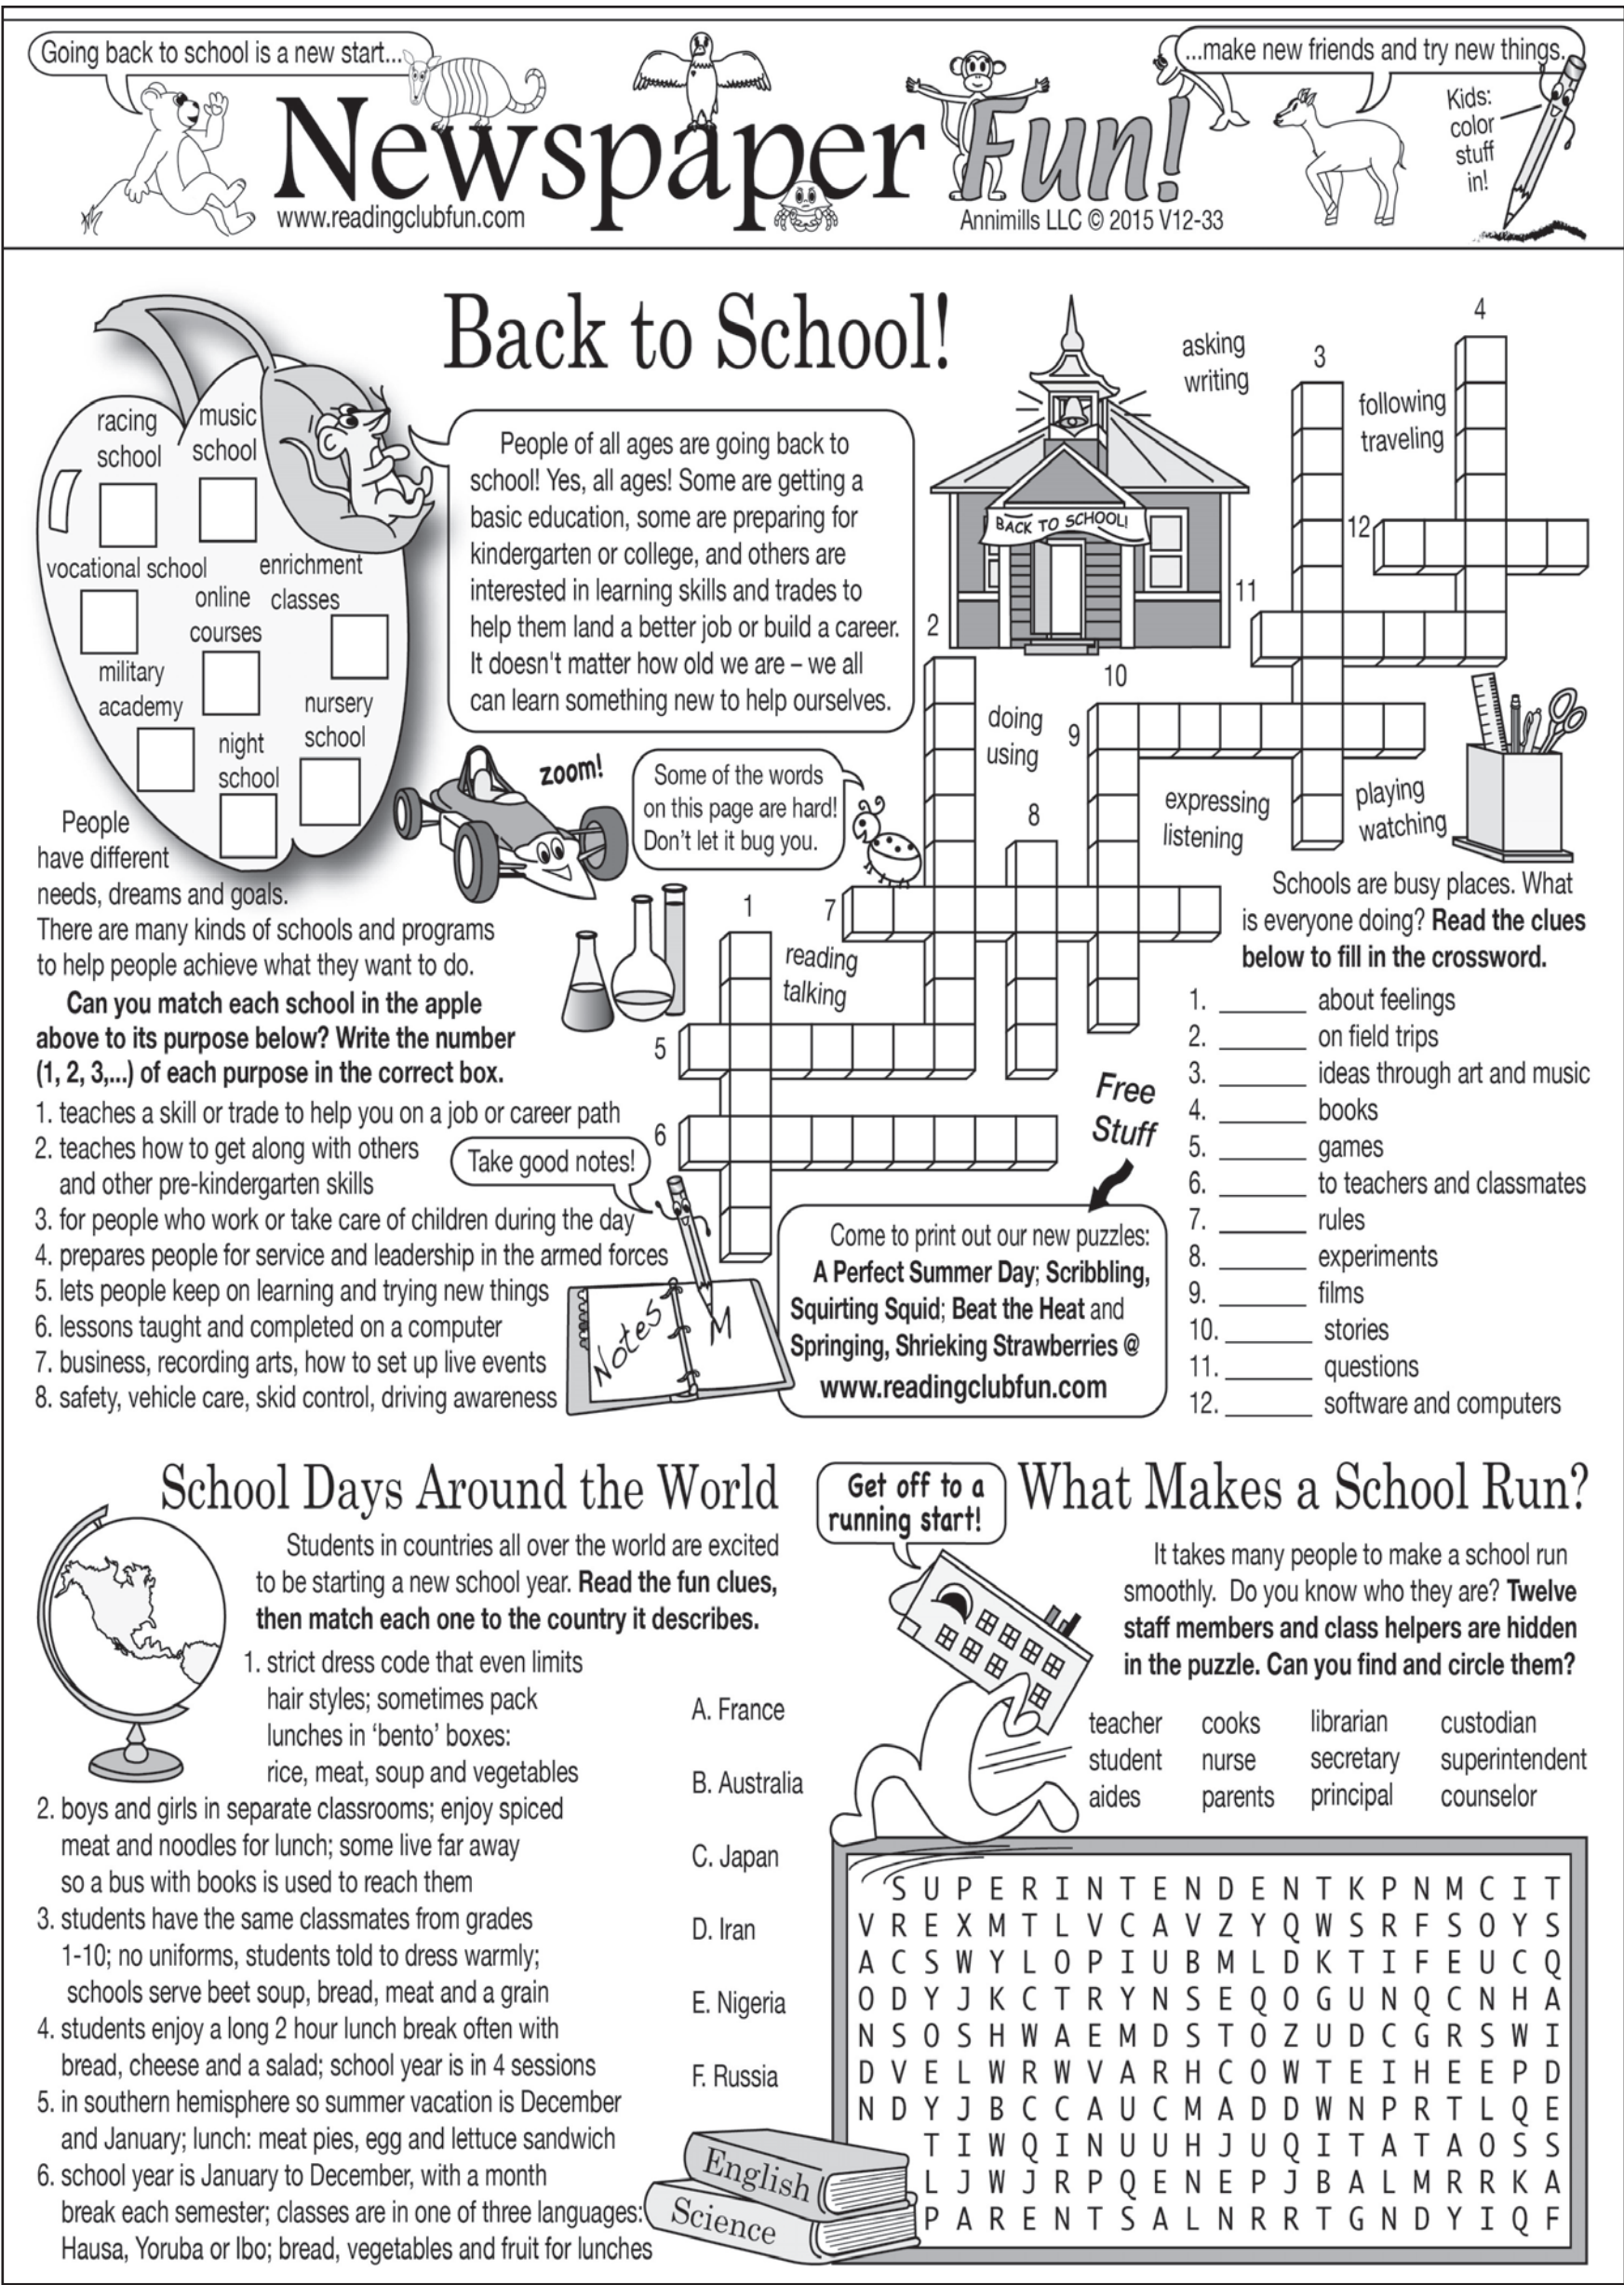 Going back to school is a new start...
...make new friends and try new things.
Kids:
color
stuff
in!
Newspaper Fun!
www.readingclubfun.com
Annimills LLC © 2015 V12-33
Back to School!
racing
school
music
school
vocational school
enrichment
classes
online
courses
military
academy
nursery
school
night
school
People of all ages are going back to
school! Yes, all ages! Some are getting a
basic education, some are preparing for
kindergarten or college, and others are
interested in learning skills and trades to
help them land a better job or build a career.
It doesn't matter how old we are – we all
can learn something new to help ourselves.
zoom!
Some of the words
on this page are hard!
Don't let it bug you.
BACK TO SCHOOL!
asking
writing
following
traveling
doing
using
expressing
listening
playing
watching
reading
talking
4
3
12
11
2
10
9
8
1
7
5
6
People
have different
needs, dreams and goals.
There are many kinds of schools and programs
to help people achieve what they want to do.
Can you match each school in the apple
above to its purpose below? Write the number
(1, 2, 3,...) of each purpose in the correct box.
1. teaches a skill or trade to help you on a job or career path
2. teaches how to get along with others
and other pre-kindergarten skills
3. for people who work or take care of children during the day
4. prepares people for service and leadership in the armed forces
5. lets people keep on learning and trying new things
6. lessons taught and completed on a computer
7. business, recording arts, how to set up live events
8. safety, vehicle care, skid control, driving awareness
Take good notes!
Notes
M
Free
Stuff
Come to print out our new puzzles:
A Perfect Summer Day; Scribbling,
Squirting Squid; Beat the Heat and
Springing, Shrieking Strawberries @
www.readingclubfun.com
Schools are busy places. What
is everyone doing? Read the clues
below to fill in the crossword.
1. _______ about feelings
2. _______ on field trips
3. _______ ideas through art and music
4. _______ books
5. _______ games
6. _______ to teachers and classmates
7. _______ rules
8. _______ experiments
9. _______ films
10. _______ stories
11. _______ questions
12. _______ software and computers
School Days Around the World
Students in countries all over the world are excited
to be starting a new school year. Read the fun clues,
then match each one to the country it describes.
1. strict dress code that even limits
hair styles; sometimes pack
lunches in ‘bento’ boxes:
rice, meat, soup and vegetables
2. boys and girls in separate classrooms; enjoy spiced
meat and noodles for lunch; some live far away
so a bus with books is used to reach them
3. students have the same classmates from grades
1-10; no uniforms, students told to dress warmly;
schools serve beet soup, bread, meat and a grain
4. students enjoy a long 2 hour lunch break often with
bread, cheese and a salad; school year is in 4 sessions
5. in southern hemisphere so summer vacation is December
and January; lunch: meat pies, egg and lettuce sandwich
6. school year is January to December, with a month
break each semester; classes are in one of three languages:
Hausa, Yoruba or Ibo; bread, vegetables and fruit for lunches
A. France
B. Australia
C. Japan
D. Iran
E. Nigeria
F. Russia
English
Science
Get off to a
running start!
What Makes a School Run?
It takes many people to make a school run
smoothly. Do you know who they are? Twelve
staff members and class helpers are hidden
in the puzzle. Can you find and circle them?
teacher cooks librarian custodian
student nurse secretary superintendent
aides parents principal counselor
S U P E R I N T E N D E N T K P N M C I T
V R E X M T L V C A V Z Y Q W S R F S O Y S
A C S W Y L O P I U B M L D K T I F E U C Q
O D Y J K C T R Y N S E Q O G U N Q C N H A
N S O S H W A E M D S T O Z U D C G R S W I
D V E L W R W V A R H C O W T E I H E E P D
N D Y J B C C A U C M A D D W N P R T L Q E
T I W Q I N U U H J U Q I T A T A O S S
L J W J R P Q E N E P J B A L M R R K A
P A R E N T S A L N R R T G N D Y I Q F